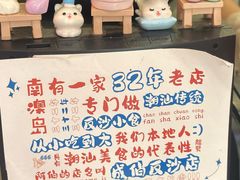 南有一家32年老店
澳岛 专门做 潮汕传统
chao shan chuan tong
反沙小食
fan sha xiao shi
从小吃到大 我们本地人:)
666 科 潮汕美食的代表性
阿伯的店名叫 成伯反沙店